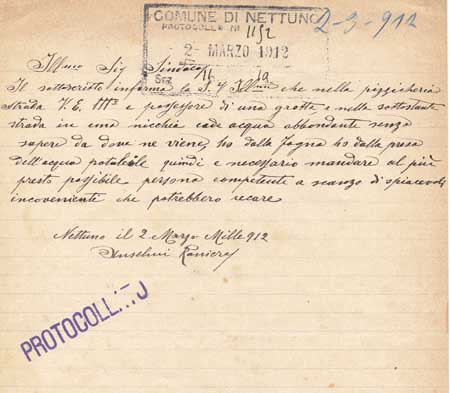 COMUNE DI NETTUNO
PROTOCOLLO N. 1152
2-3-912
2- MARZO 1912
Illmo Sig Sindaco
Sez
Il sottoscritto informa la S. V Illma che nella pizzicheria
strada V. E. IIIº e possessore di una grotta e nella sottostante
strada in una nicchia cade acqua abbondante senza
sapere da dove ne viene, ho dalla fogna ho dalla presa
dell'acqua potabile quindi e necessario mandare al più
presto possibile persona competente a scanzo di spiacevole
inconveniente che potrebbero recare
Nettuno il 2 Marzo Mille 912
Anselmi Raniero
PROTOCOLL